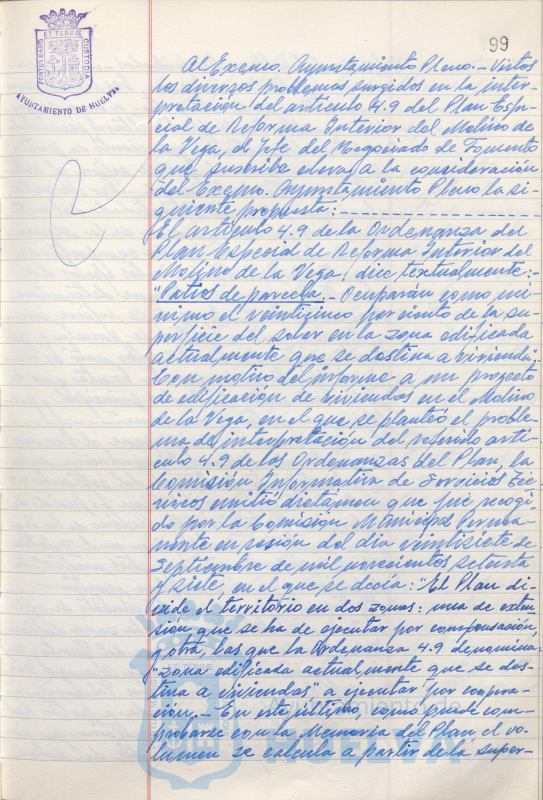 99
PORTUS MARIS ET TERRAE CUSTODIA
AYUNTAMIENTO DE HUELVA
Al Excmo. Ayuntamiento Pleno.- Vistos
los diversos problemas surgidos en la inter-
pretación del artículo 4.9 del Plan Espe-
cial de Reforma Interior del Molino de
la Vega, el Jefe del Negociado de Fomento
que suscribe eleva a la consideración
del Excmo. Ayuntamiento Pleno la si-
guiente propuesta:
El artículo 4.9 de la Ordenanza del
Plan Especial de Reforma Interior del
Molino de la Vega, dice textualmente:-
"Patios de parcela.- Ocuparán como mí-
nimo el veinticinco por ciento de la su-
perficie del solar en la zona edificada
actualmente que se destina a vivienda".-
Con motivo del informe a un proyecto
de edificación de viviendas en el Molino
de la Vega, en el que se planteó el proble-
ma de interpretación del referido artí-
culo 4.9 de las Ordenanzas del Plan, la
Comisión Informativa de Servicios Téc-
nicos emitió dictámen que fué recogi-
do por la Comisión Municipal Perma-
nente en sesión del día veintisiete de
Septiembre de mil novecientos setenta
y siete, en el que se decía: "El Plan di-
vide el territorio en dos zonas: una de exten-
sión que se ha de ejecutar por compensación,
y otra, las que la Ordenanza 4.9 denomina:
"Zona edificada actualmente que se des-
tina a viviendas" a ejecutar por coopera-
ción.- En este último, como puede com-
probarse con la Memoria del Plan, el vo-
lumen se calcula a partir de la super-
Ayuntamiento de
HUELVA